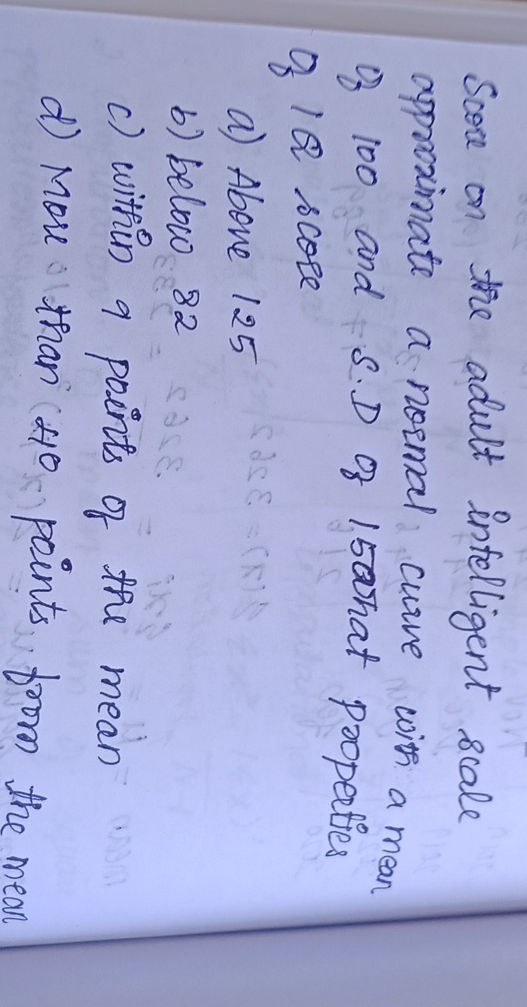 Score on the adult intelligent scale
approximate a normal curve with a mean
of 100 and S.D of 15 what properties
of IQ score
a) Above 125
b) below 82
c) within 9 points of the mean
d) More than 40 points from the mean